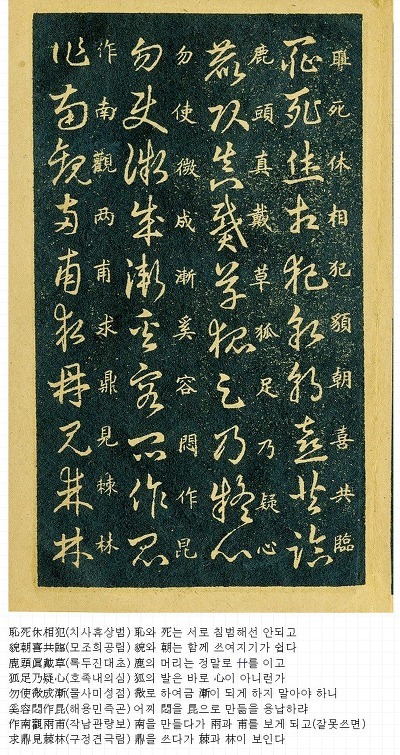 耻死休相犯䫉朝喜共臨
耻死休相犯䫉朝喜共臨
鹿頭真戴草狐足乃疑心
鹿頭真戴草狐足乃疑心
勿使微成漸奚容悶作昆
勿使微成漸奚容悶作昆
作南觀两甫求鼎見棘林
作南觀两甫求鼎見棘林
恥死休相犯(치사휴상범) 恥와 死는 서로 침범해선 안되고
貌朝喜共臨(모조희공림) 貌와 朝는 함께 쓰여지기가 쉽다
鹿頭眞戴草(록두진대초) 鹿의 머리는 정말로 卄를 이고
狐足乃疑心(호족내의심) 狐의 발은 바로 心이 아니런가
勿使微成漸(물사미성점) 微로 하여금 漸이 되게 하지 말아야 하니
奚容悶作昆(해용민즉곤) 어찌 悶을 昆으로 만듦을 용납하랴
作南觀兩甫(작남관량보) 南을 만들다가 兩과 甫를 보게 되고(잘못쓰면)
求鼎見棘林(구정견극림) 鼎을 쓰다가 棘과 林이 보인다